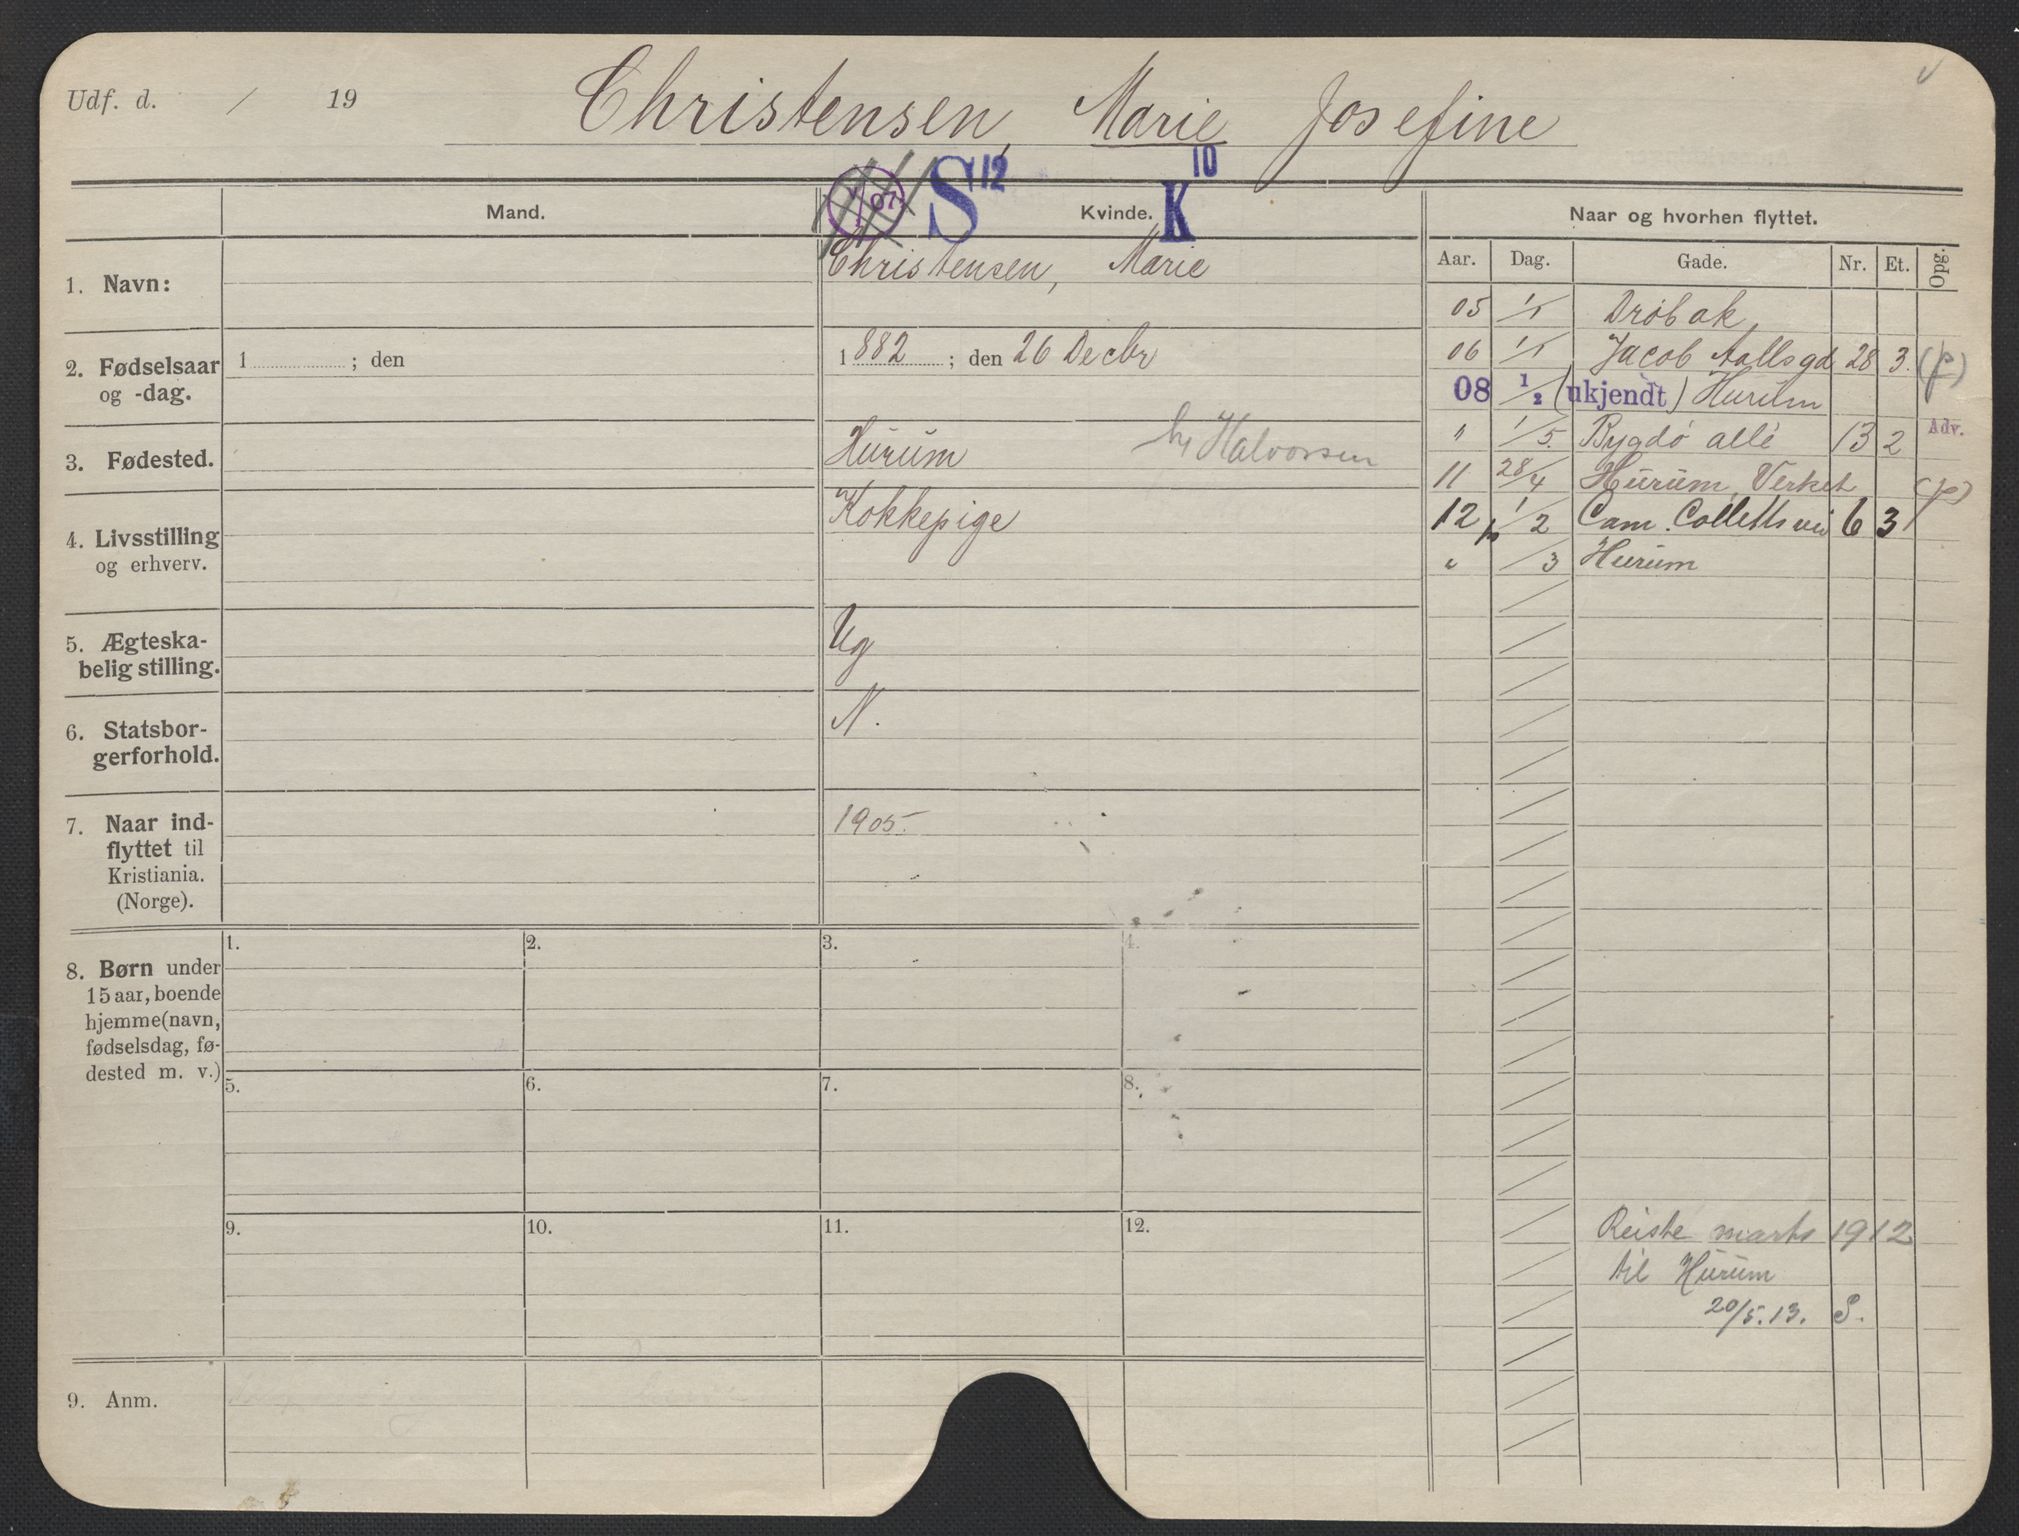 Udf. d. / 19 Christensen, Marie Josefine
S12 K10
1/1 07
Mand. Kvinde. Naar og hvorhen flyttet.
Aar. Dag. Gade. Nr. Et. Opg.
1. Navn: Christensen, Marie
2. Fødselsaar og -dag. 1 ; den 1882 ; den 26 Decbr
3. Fødested. Hurum Halvorsen
4. Livsstilling og erhverv. Kokkepige
5. Ægteska-
belig stilling. Ug
6. Statsbor-
gerforhold. N.
7. Naar ind-
flyttet til
Kristiania.
(Norge). 1905.
05 1/1 Drøbak
06 1/1 Jacob Aallsgd 28 3. (p)
08 1/2 (ukjendt) Hurum
" 1/5. Bygdø allé 13 2 Adv.
11 28/4 Hurum, Verket (p)
12 1/2 Cam. Colletts vei 6 3
" /3 Hurum
8. Børn under
15 aar, boende
hjemme (navn,
fødselsdag, fø-
dested m. v.)
1. 2. 3. 4.
5. 6. 7. 8.
9. 10. 11. 12.
Reiste marts 1912
til Hurum
20/5.13. S.
9. Anm.